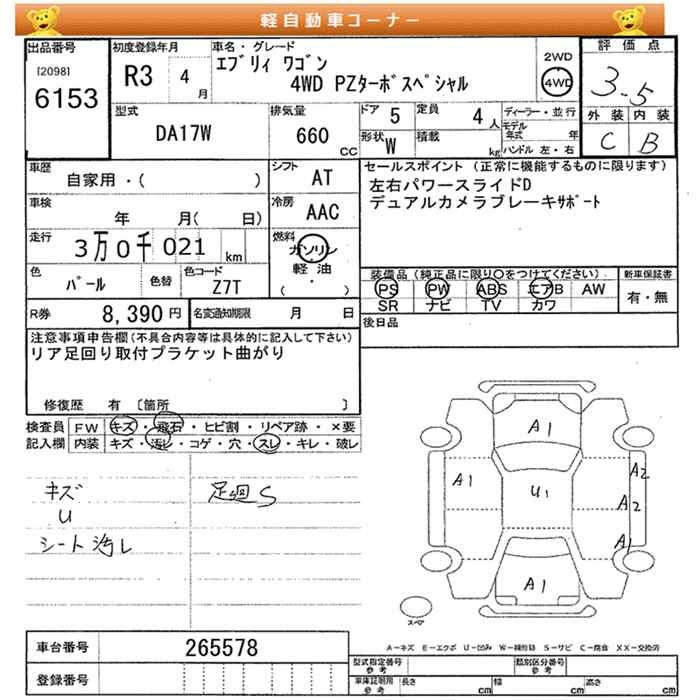 軽自動車コーナー
出品番号 初度登録年月 車名・グレード 2WD 評価点
[2098] 6153 R3 4月 エブリィ ワゴン 4WD PZターボスペシャル 4WD 3.5
型式 排気量 ドア 5 定員 4人 ディーラー・並行 外装 内装
DA17W 660 CC 形状 W 積載 kg モデル年式 年 C B
ハンドル 左・右
車歴 シフト セールスポイント (正常に機能するものに限ります)
自家用・( ) AT 左右パワースライドD
車検 冷房 デュアルカメラブレーキサポート
年 月( 日) AAC
走行 燃料
3万0千021 km ガソリン
色 色替 色コード 軽油 装備品(純正品に限り○をつけてください) 新車保証書
パール Z7T ・ ( ) PS PW ABS エアB AW 有・無
SR ナビ TV カワ
R券 8,390円 名変通知期限 月 日 後日品
注意事項申告欄(不具合内容等は具体的に記入して下さい)
リア足回り取付ブラケット曲がり
修復歴 有 〔箇所 〕
検査員 FW キズ・飛石・ヒビ割・リペア跡・×要
記入欄 内装 キズ・汚レ・コゲ・穴・スレ・キレ・破レ
キズ 足廻S
U
シート汚レ
A1
A1 U1 A2
A2
A1
A1
スペア
A-キズ E-エクボ U-凹み W-補修跡 S-サビ C-腐食 XX-交換済
車台番号 265578
型式指定番号 参考 類別区分番号 参考
登録番号 車庫証明用 参考 長さ cm 幅 cm 高さ cm